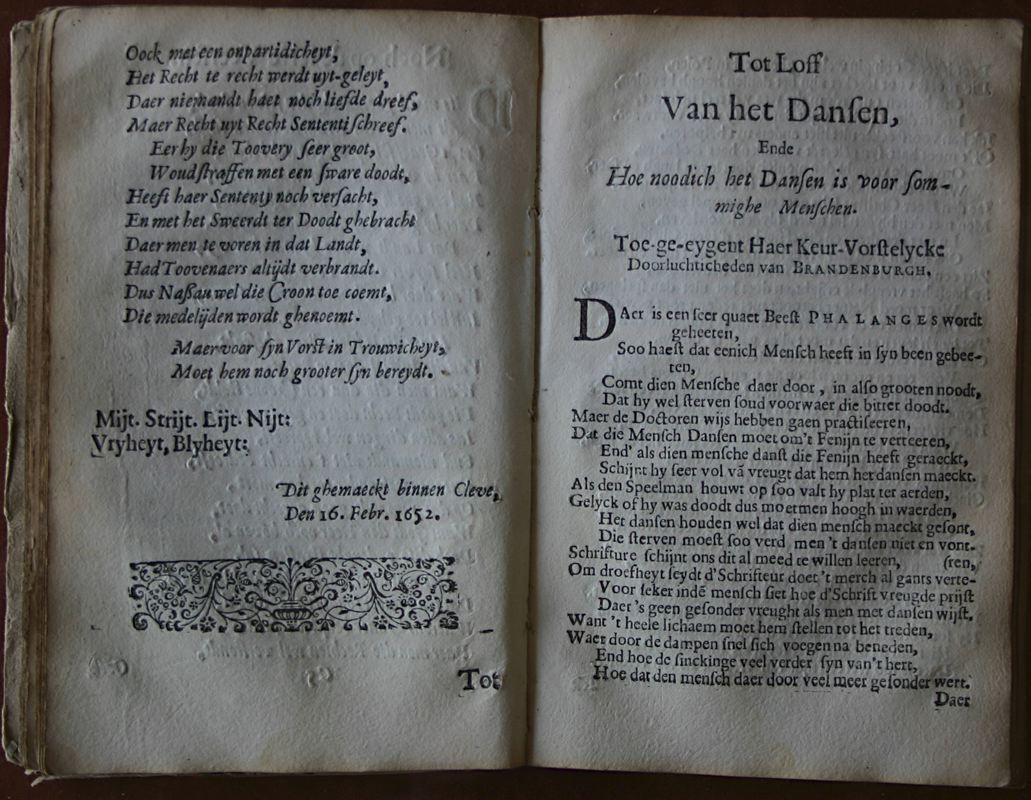 Oock met een onpartidicheyt,
Het Recht te recht werdt uyt-geleyt,
Daer niemandt haet noch liefde dreef,
Maer Recht uyt Recht Sententi schreef.
Eer hy die Toovery seer groot,
Woud straffen met een sware doodt,
Heeft haer Sententy noch versacht,
En met het Sweerdt ter Doodt ghebracht
Daer men te voren in dat Landt,
Had Toovenaers altijdt verbrandt.
Dus Nassau wel die Croon toe coemt,
Die medelijden wordt ghenoemt.
Maer voor syn Vorst in Trouwicheyt,
Moet hem noch grooter syn bereydt.
Mijt. Strijt. Lijt. Nijt:
Vryheyt, Blyheyt:
Dit ghemaeckt binnen Cleve,
Den 16. Febr. 1652.
Tot
Tot Loff
Van het Dansen,
Ende
Hoe noodich het Dansen is voor som-
mighe Menschen.
Toe-ge-eygent Haer Keur-Vorstelycke
Doorluchticheden van BRANDENBURGH.
DAer is een seer quaet Beest PHALANGES wordt
geheeten,
Soo haest dat eenich Mensch heeft in syn been gebee-
ten,
Comt dien Mensche daer door, in also grooten noodt,
Dat hy wel sterven soud voorwaer die bitter doodt.
Maer de Doctoren wijs hebben gaen practiseeren,
Dat die Mensch Dansen moet om't Fenijn te verteeren,
End' als dien mensche danst die Fenijn heeft geraeckt,
Schijnt hy seer vol vā vreugt dat hem het dansen maeckt.
Als den Speelman houwt op soo valt hy plat ter aerden,
Gelyck of hy was doodt dus moetmen hoogh in waerden,
Het dansen houden wel dat dien mensch maeckt gesont,
Die sterven moest soo verd men 't dansen niet en vont.
Schrifture schijnt ons dit al meed te willen leeren, (sren,
Om droefheyt seydt d'Schrifteur doet 't merch al gants verte-
Voor seker indē mensch siet hoe d'Schrift vreugde prijst
Daer 's geen gesonder vreught als men met dansen wijst.
Want 't heele lichaem moet hem stellen tot het treden,
Waer door de dampen snel sich voegen na beneden,
End hoe de sinckinge veel verder syn van't hert,
Hoe dat den mensch daer door veel meer gesonder wert.
Daer